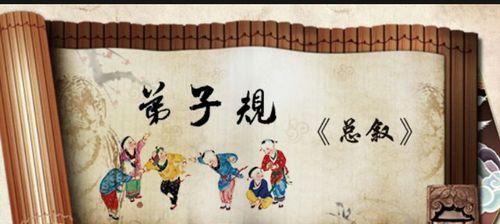 弟子規
《总叙》